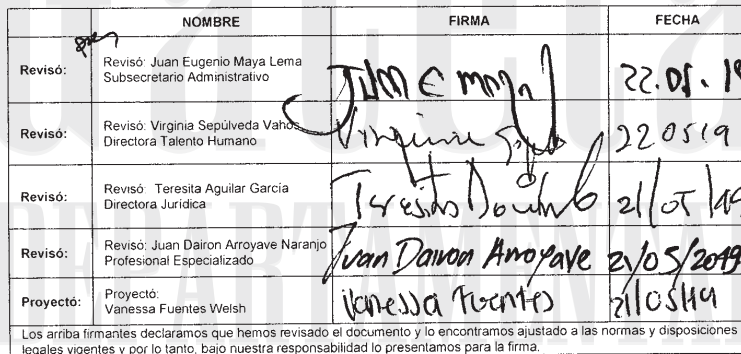 NOMBRE FIRMA FECHA
Revisó: Revisó: Juan Eugenio Maya Lema
Subsecretario Administrativo
Juan E Maya L 22.05.19
Revisó: Revisó: Virginia Sepúlveda Vahos
Directora Talento Humano
Virginia 220519
Revisó: Revisó: Teresita Aguilar García
Directora Jurídica
Teresita 21/05/19
Revisó: Revisó: Juan Dairon Arroyave Naranjo
Profesional Especializado
Juan Dairon Arroyave 21/05/2019
Proyectó: Proyectó:
Vanessa Fuentes Welsh
Vanessa Fuentes 21/05/19
Los arriba firmantes declaramos que hemos revisado el documento y lo encontramos ajustado a las normas y disposiciones
legales vigentes y por lo tanto, bajo nuestra responsabilidad lo presentamos para la firma.